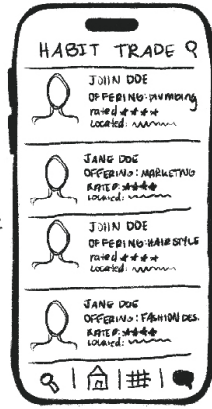 HABIT TRADE
JOHN DOE
OFFERING: Plumbing
rated ★★★★
Located:
JANE DOE
OFFERING: MARKETING
RATED: ★★★★
Located:
JOHN DOE
OFFERING: HAIRSTYLE
rated ★★★★
Located:
JANE DOE
OFFERING: FASHION DES.
RATED: ★★★★
Located: